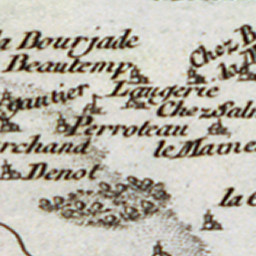 la Bourjade
Chez B
Beautemp
la
gautier
Laugerie
Chez Salm
Perroteau
rchand
le Maine
Denot
la